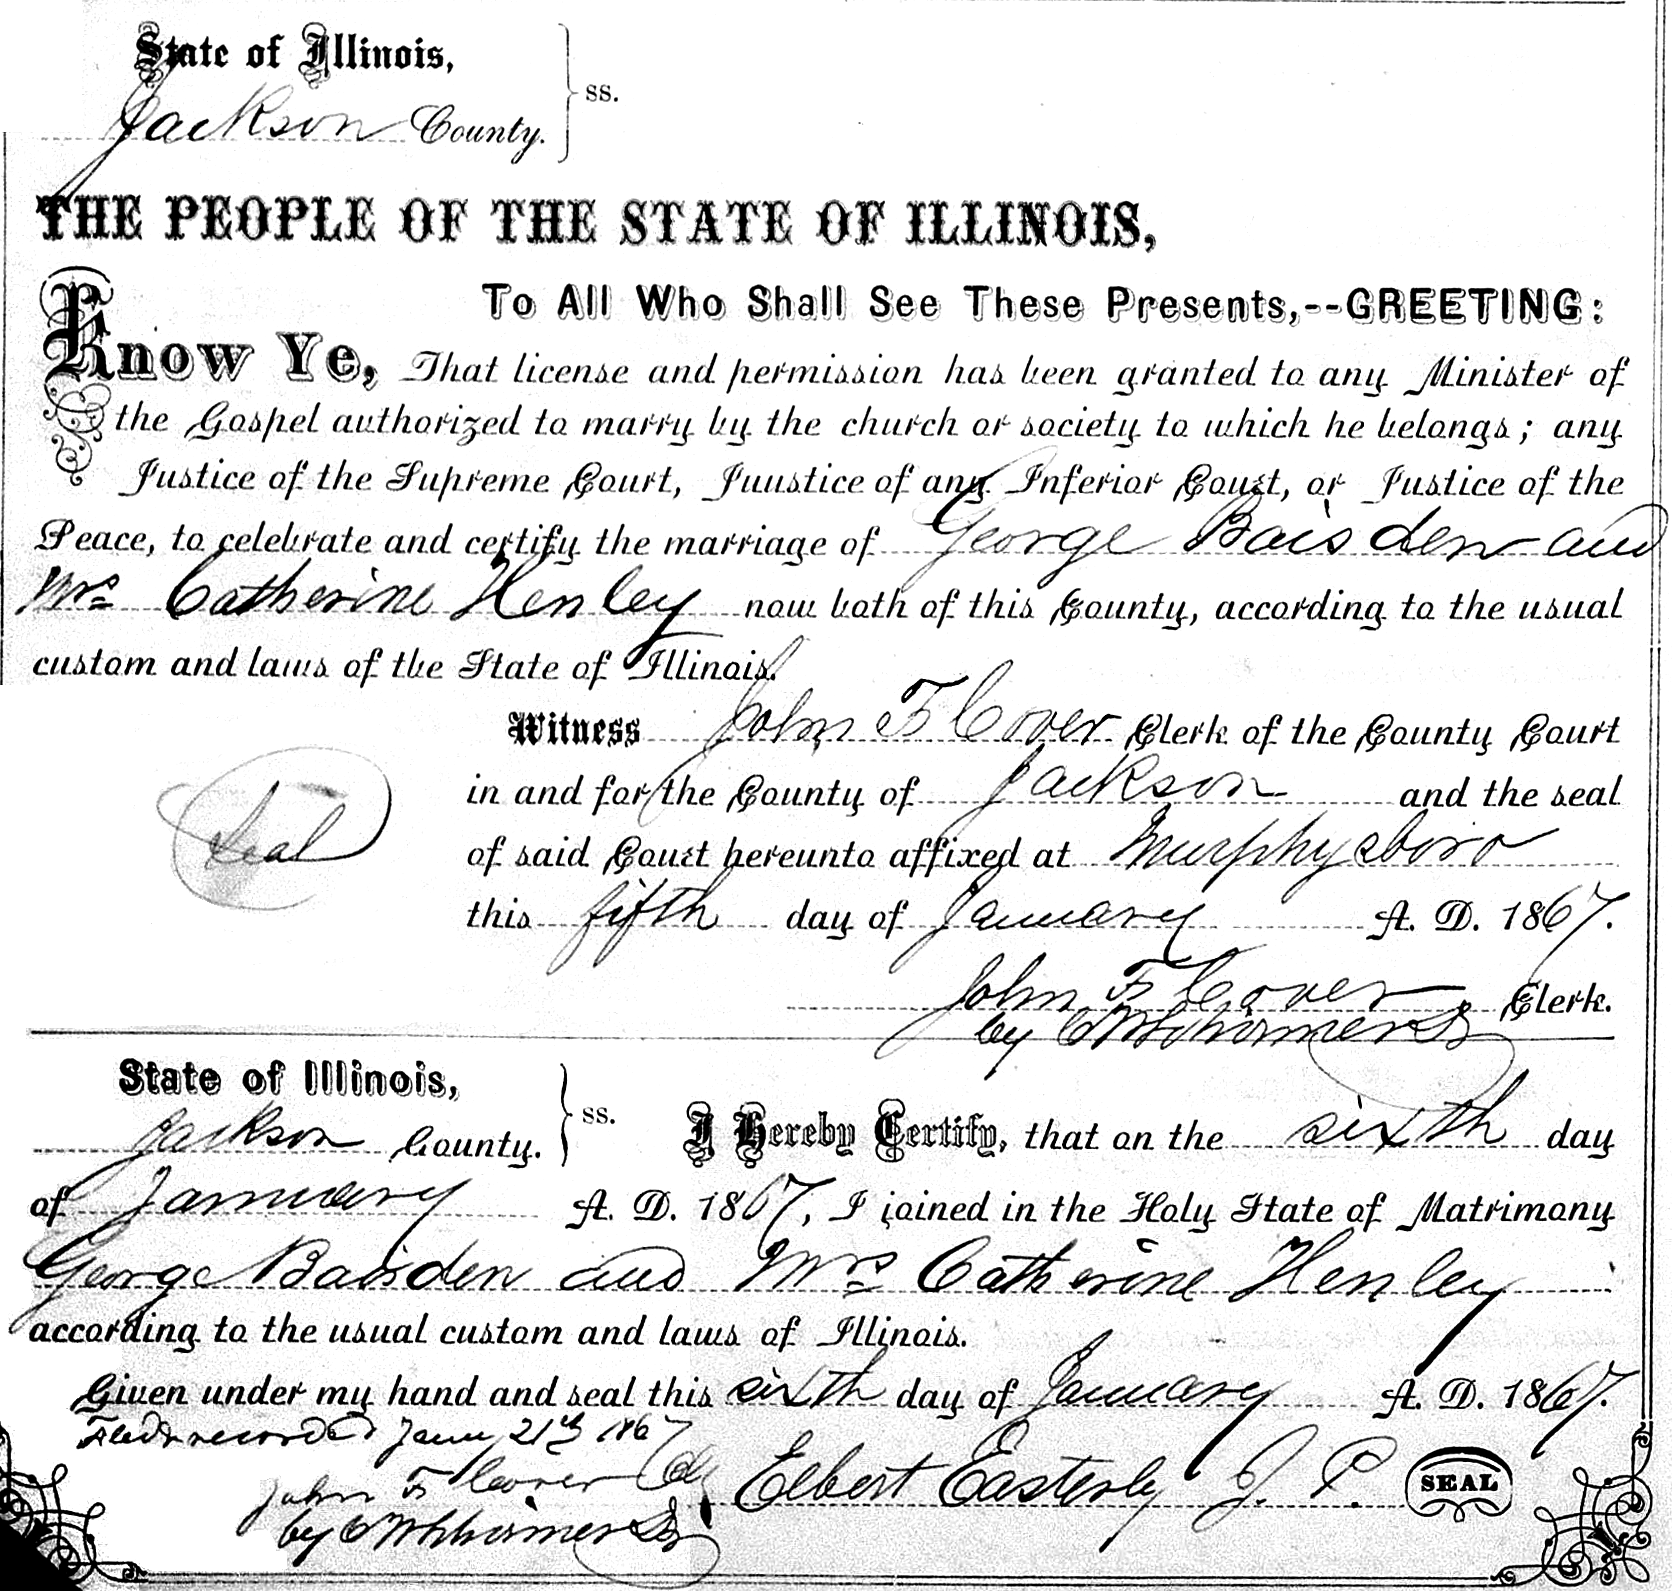 State of Illinois,
ss.
Jackson County.
THE PEOPLE OF THE STATE OF ILLINOIS,
To All Who Shall See These Presents,--GREETING:
Know Ye, That license and permission has been granted to any Minister of
the Gospel authorized to marry by the church or society to which he belongs; any
Justice of the Supreme Court, Juustice of any Inferior Court, or Justice of the
Peace, to celebrate and certify the marriage of George Baisden and
Mrs Catherine Henley now both of this County, according to the usual
custom and laws of the State of Illinois.
Witness John F Cover Clerk of the County Court
in and for the County of Jackson and the seal
Seal
of said Court hereunto affixed at Murphysboro
this fifth day of January A. D. 1867.
John F Cover Clerk.
by
State of Illinois,
ss.
Jackson County.
I Hereby Certify, that on the sixth day
of January A. D. 1867, I joined in the Holy State of Matrimony
George Baisden and Mrs Catherine Henley
according to the usual custom and laws of Illinois.
Given under my hand and seal this sixth day of January A. D. 1867.
Filed & recorded Jany 21st 1867
John F Cover Clk
Elbert Easterly J. P. SEAL
by